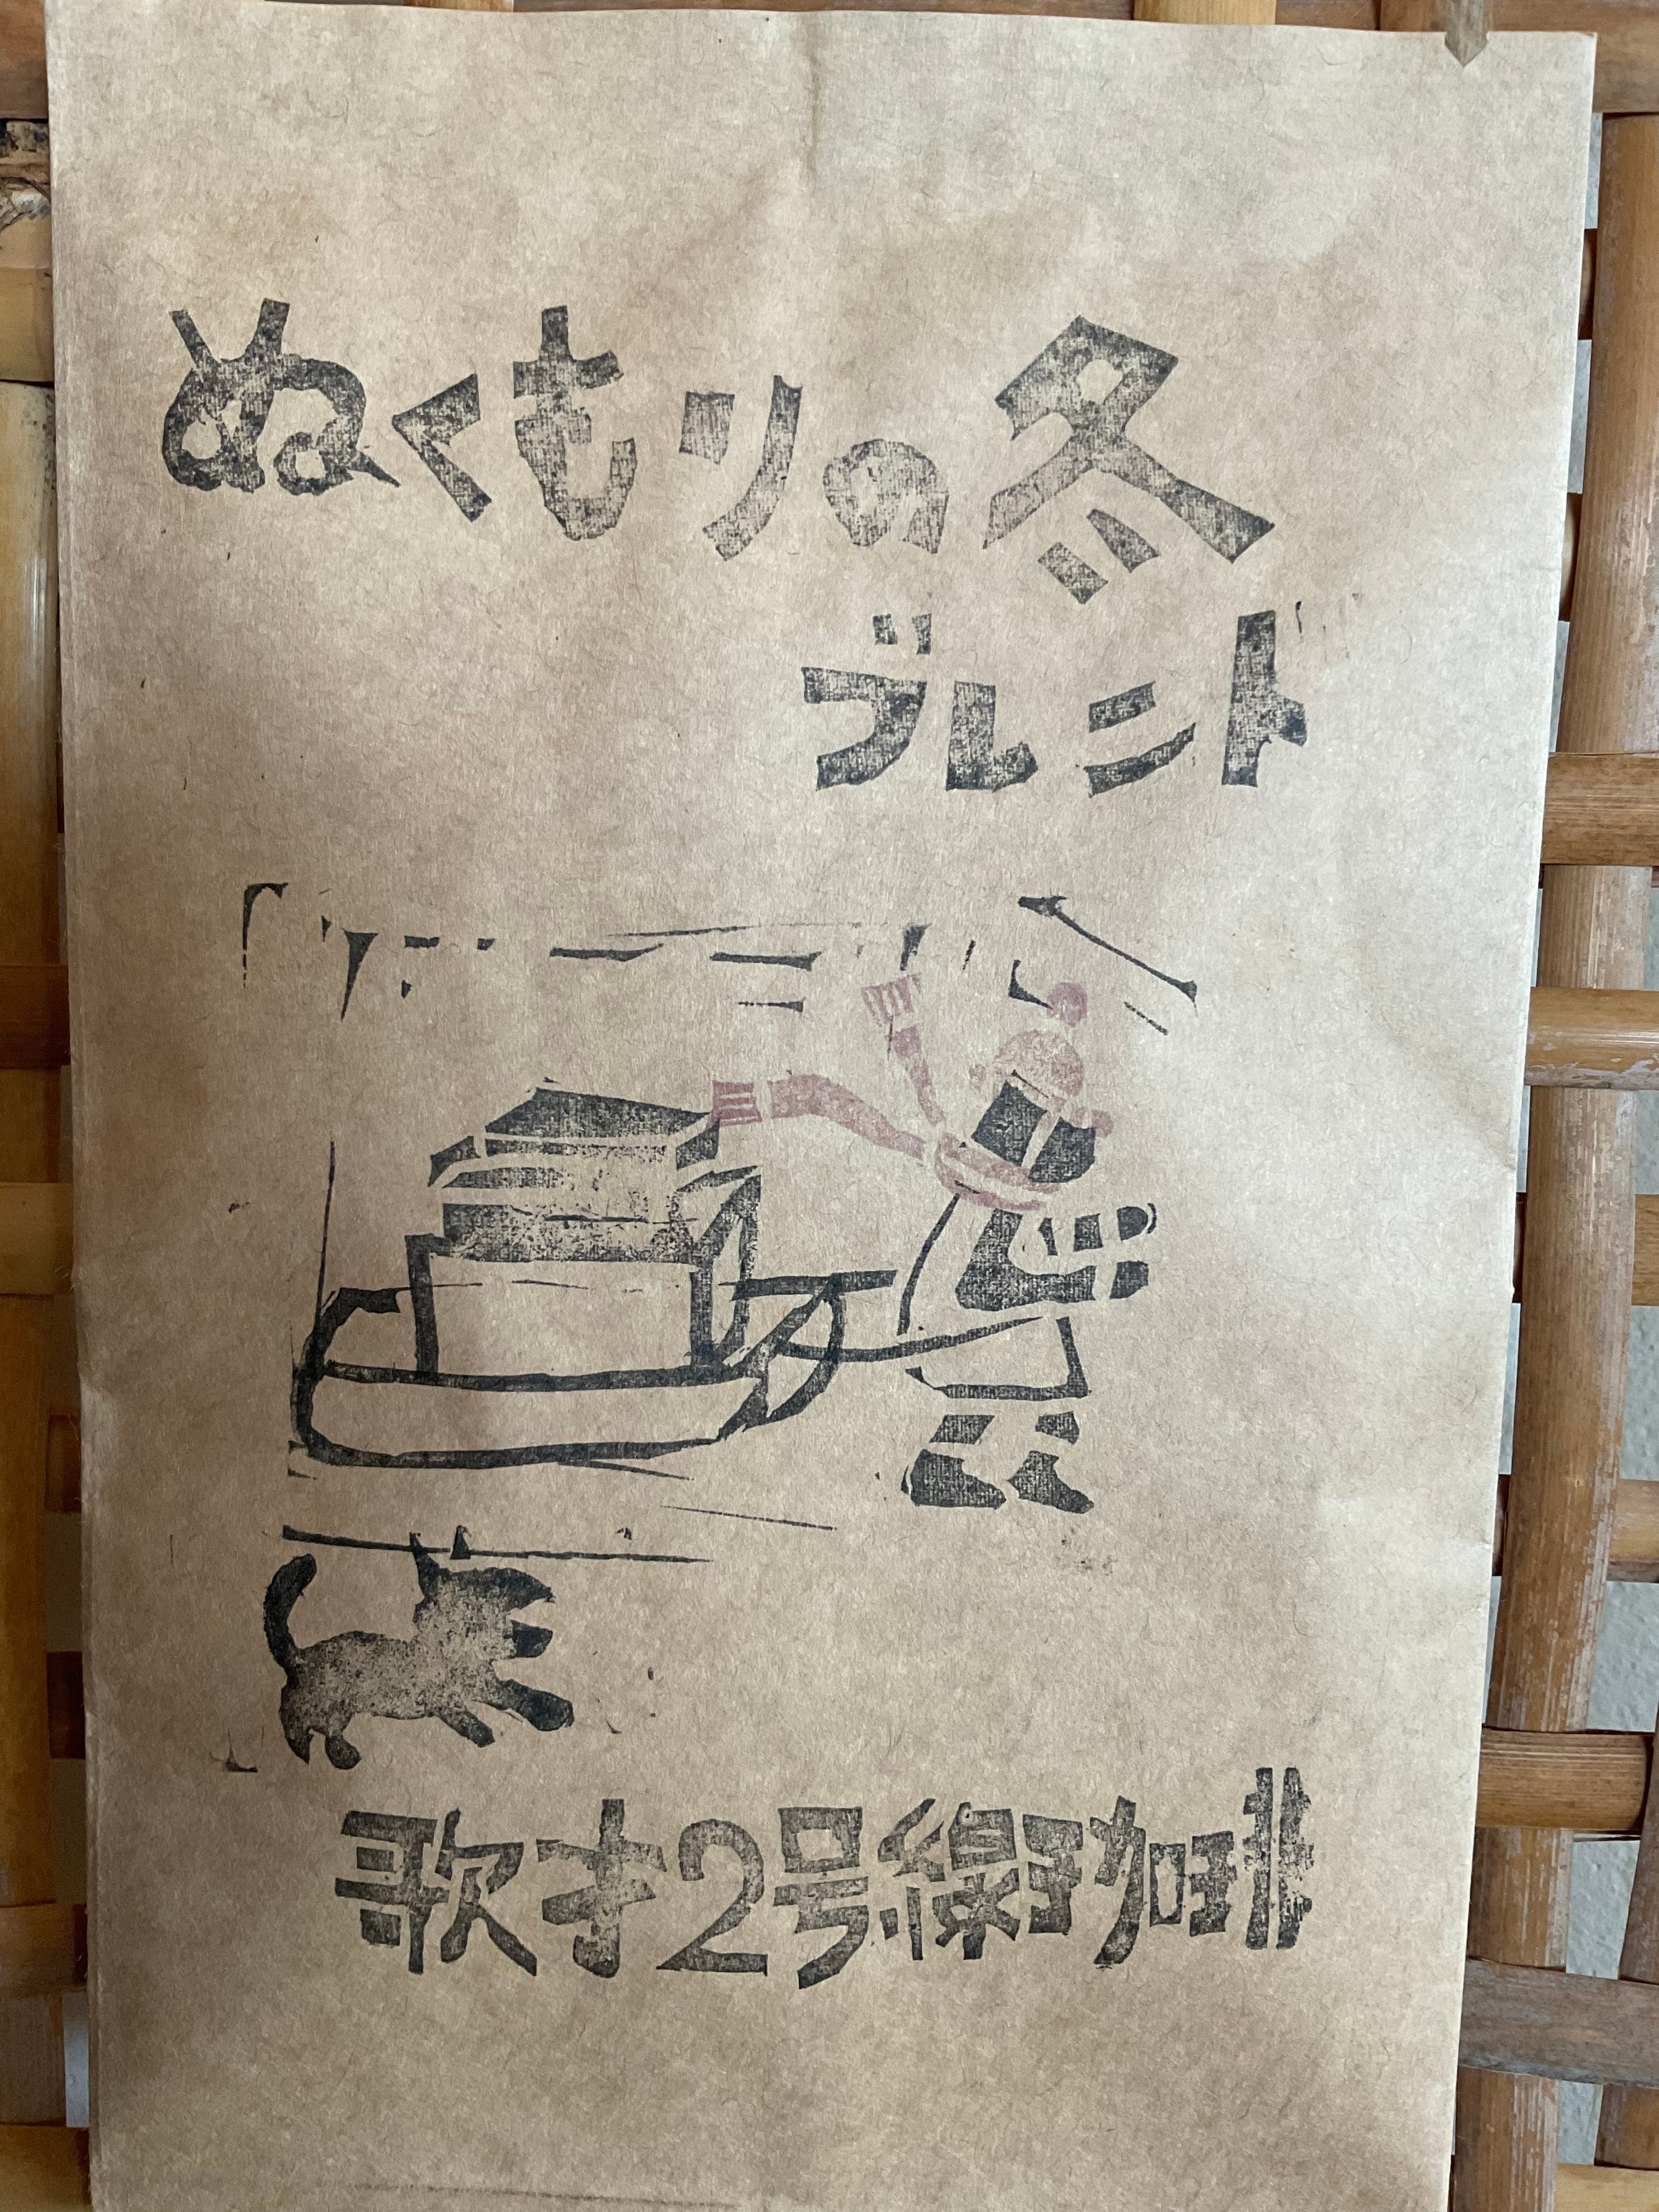 ぬくもりの冬
ブレンド
歌才2号線珈琲